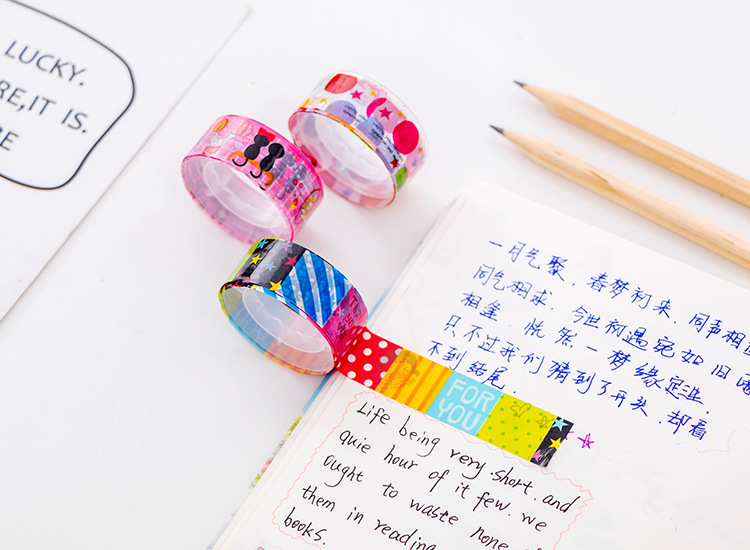 LUCKY.
RE, IT IS.
RE
一月气聚．春梦初来．同声相应
同气相求．今世初遇宛如旧雨
相逢．恍然一梦缘定
只不过我们猜到了开头．却看
不到结尾．
FOR
YOU
Life being very short. and
quie hour of it few. we
ought to waste none of
them in reading
books.